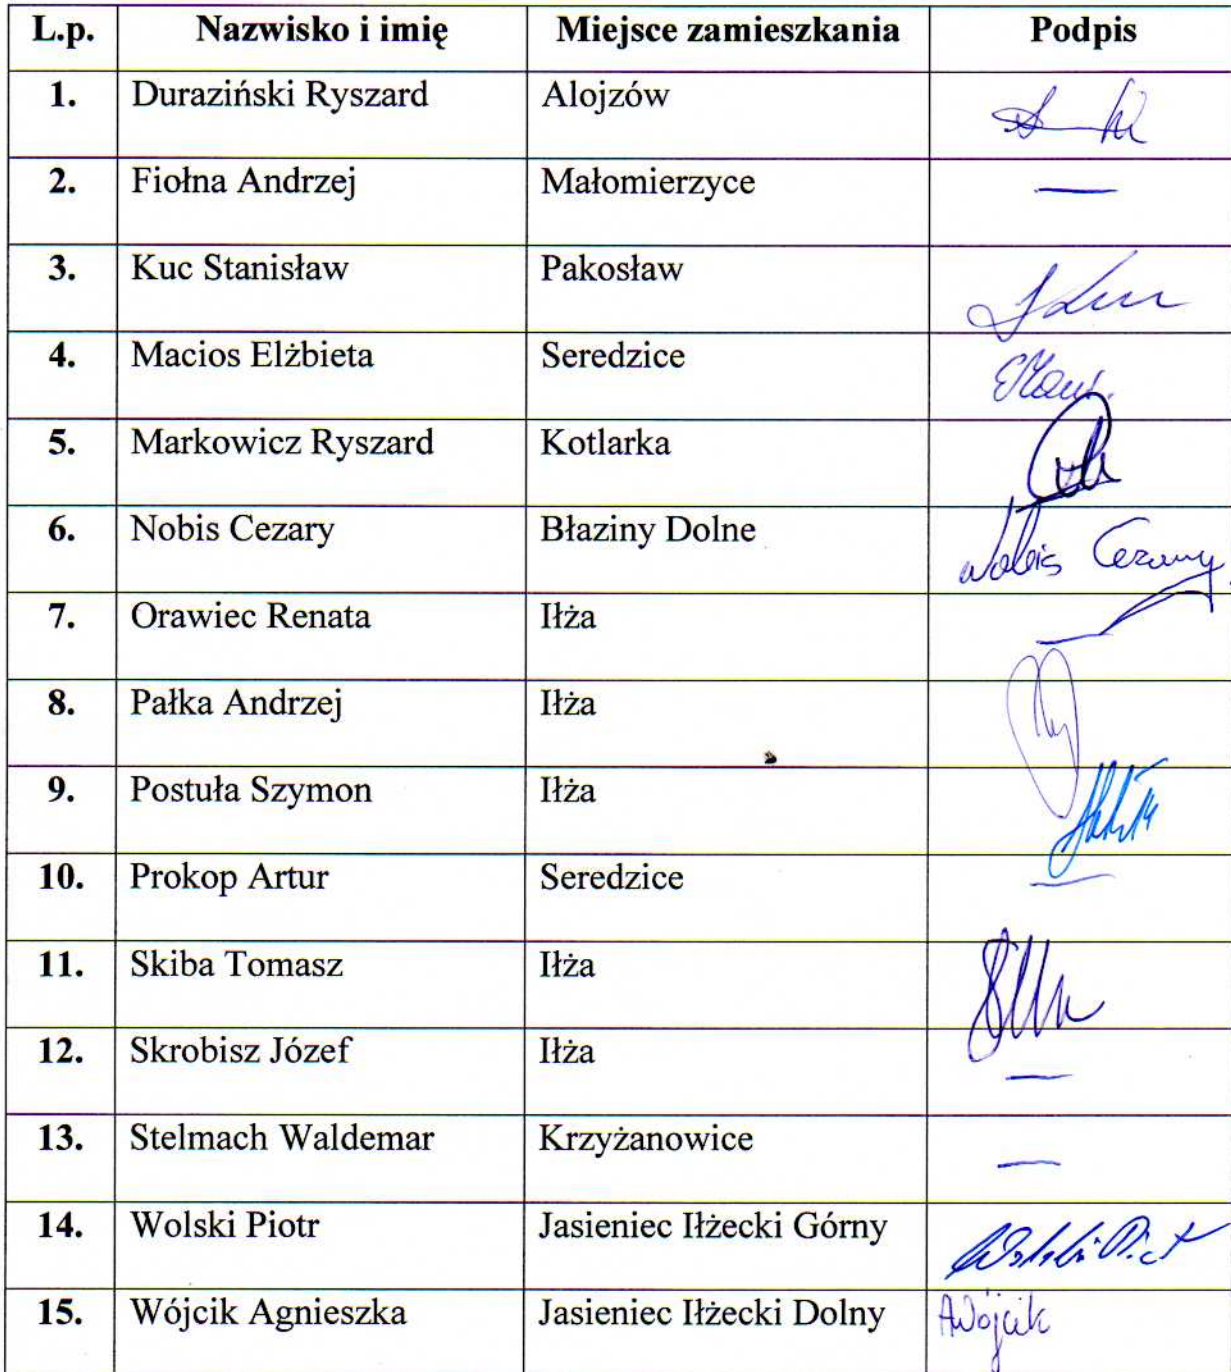 L.p. Nazwisko i imię Miejsce zamieszkania Podpis
1. Duraziński Ryszard Alojzów
2. Fiołna Andrzej Małomierzyce —
3. Kuc Stanisław Pakosław
4. Macios Elżbieta Seredzice
5. Markowicz Ryszard Kotlarka
6. Nobis Cezary Błaziny Dolne Nobis Cezary
7. Orawiec Renata Iłża —
8. Pałka Andrzej Iłża
9. Postuła Szymon Iłża
10. Prokop Artur Seredzice —
11. Skiba Tomasz Iłża
12. Skrobisz Józef Iłża —
13. Stelmach Waldemar Krzyżanowice —
14. Wolski Piotr Jasieniec Iłżecki Górny Wolski Piotr
15. Wójcik Agnieszka Jasieniec Iłżecki Dolny AWójcik